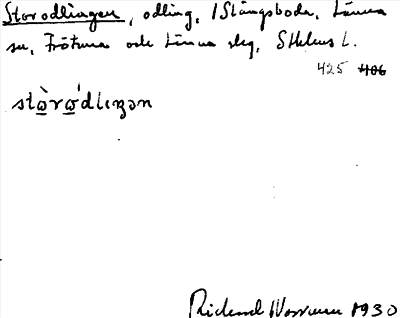 Storodlingen, odling, /Stångsboda, Länna
sn, Frötuna och Länna skg, Sthlms l.
425 406
stòródlıŋən
Richard Norrman 1930